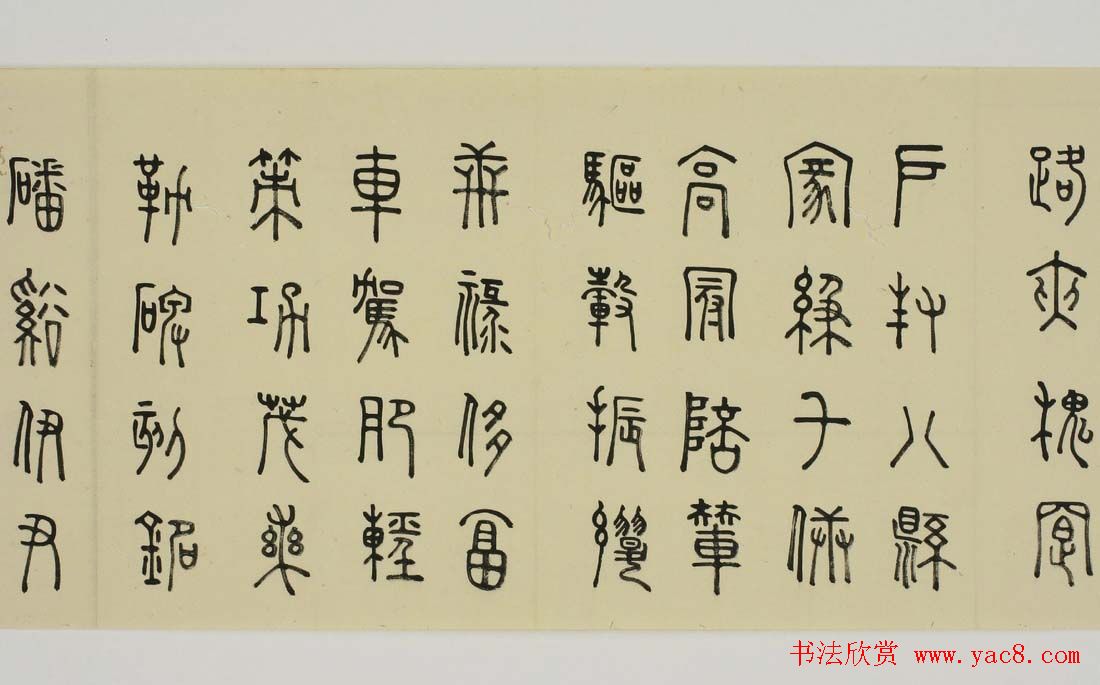 路夾槐卿
戶封八縣
家給千兵
高冠陪輦
驅轂振纓
世祿侈富
車駕肥輕
策功茂
勒碑刻銘
磻谿伊尹
书法欣赏 www.yac8.com